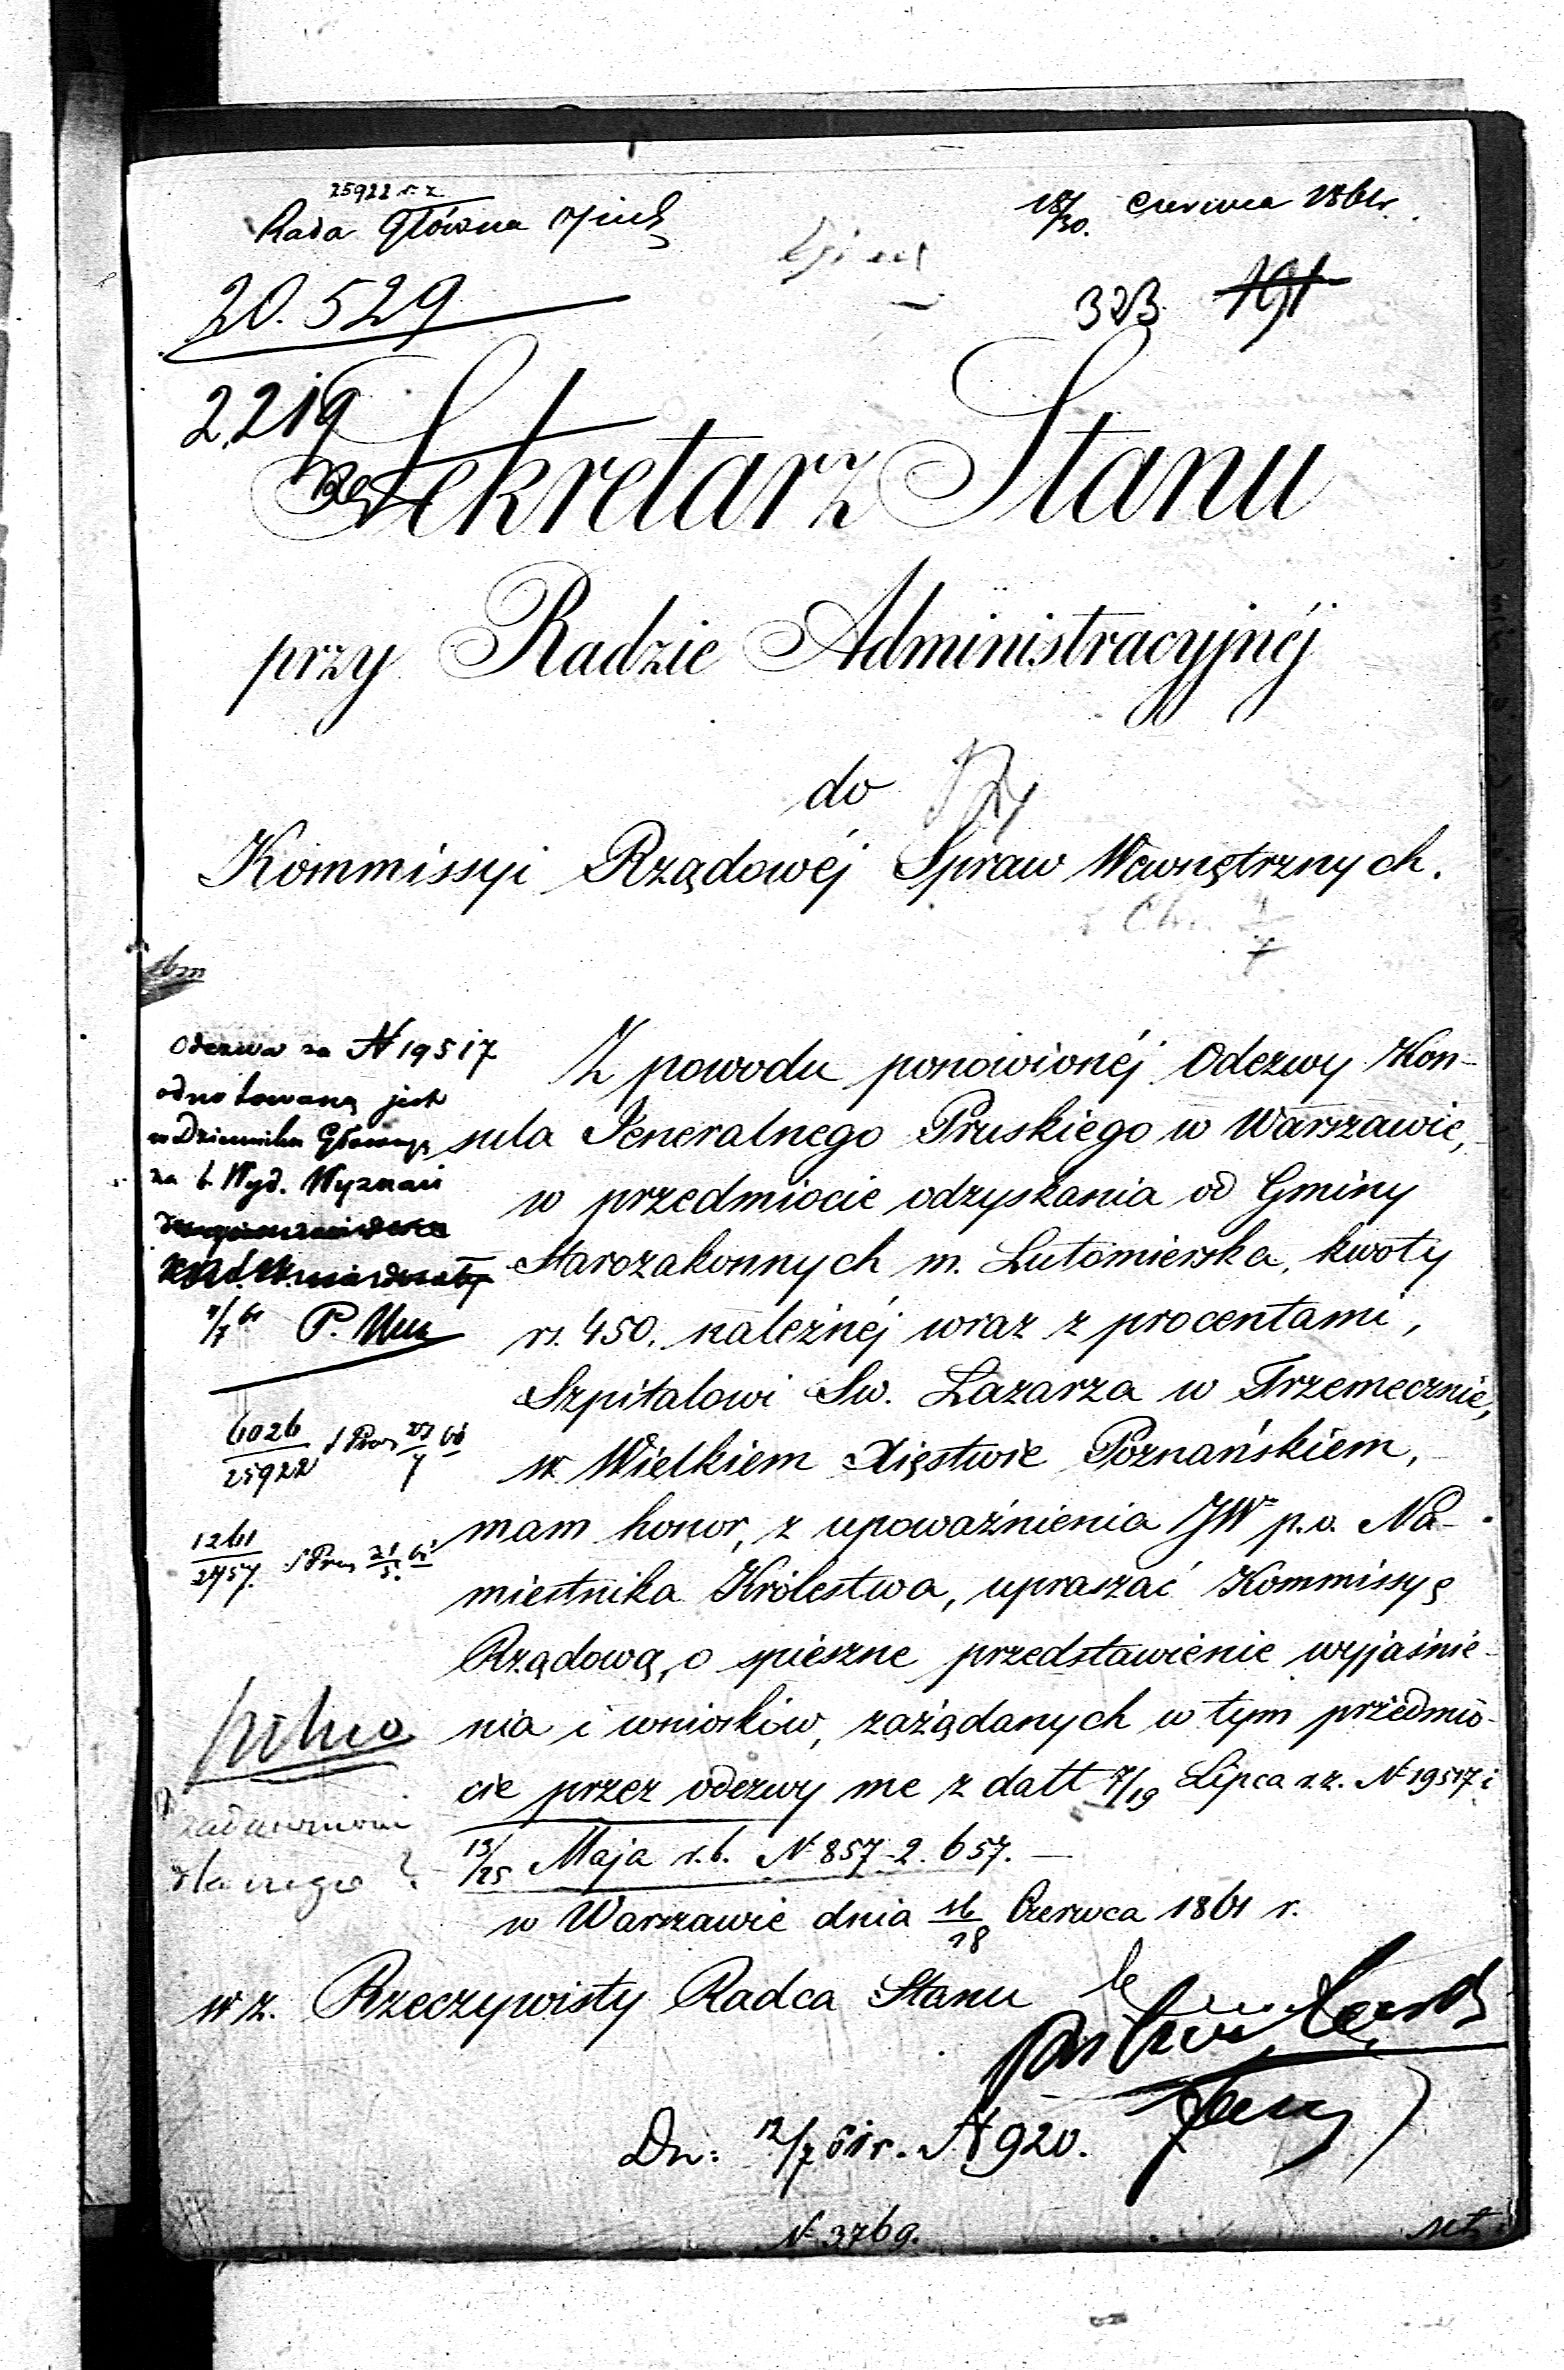 25922 r. z.
Rada Główna
18/30. Czerwca 1861 r.
20.529
323. 191
2,219
Sekretarz Stanu
przy Radzie Administracyjnéj
do
Kommissyi Rządowéj Spraw Wewnętrznych.
Odezwa za N 19517
odnotowaną jest
w Dzienniku Głównym
Wyd. Wyznań
Z powodu ponowionéj Odezwy Kon-
sula Jeneralnego Pruskiego w Warszawie,
w przedmiocie odzyskania od Gminy
Starozakonnych m. Lutomierska, kwoty
rs. 450. należnéj wraz z procentami,
Szpitalowi Sw. Łazarza w Trzemecznie,
w Wielkiem Xięstwie Poznańskiem,
mam honor, z upoważnienia JW p.o. Na-
miestnika Królestwa, upraszać Kommissyę
Rządową, o spieszne przedstawienie wyjaśnie-
nia i wniosków, zażądanych w tym przedmio-
cie przez odezwy me z datt 7/19 Lipca r.z. N 19517 i
13/25 Maja r.b. N 857-2.657. —
w Warszawie dnia 16/18 Czerwca 1861 r.
6026
25922
1261
2457.
pilno
dla czego?
w z. Rzeczywisty Radca Stanu
Dn: 12/7 61 r. N 920.
N 3769.